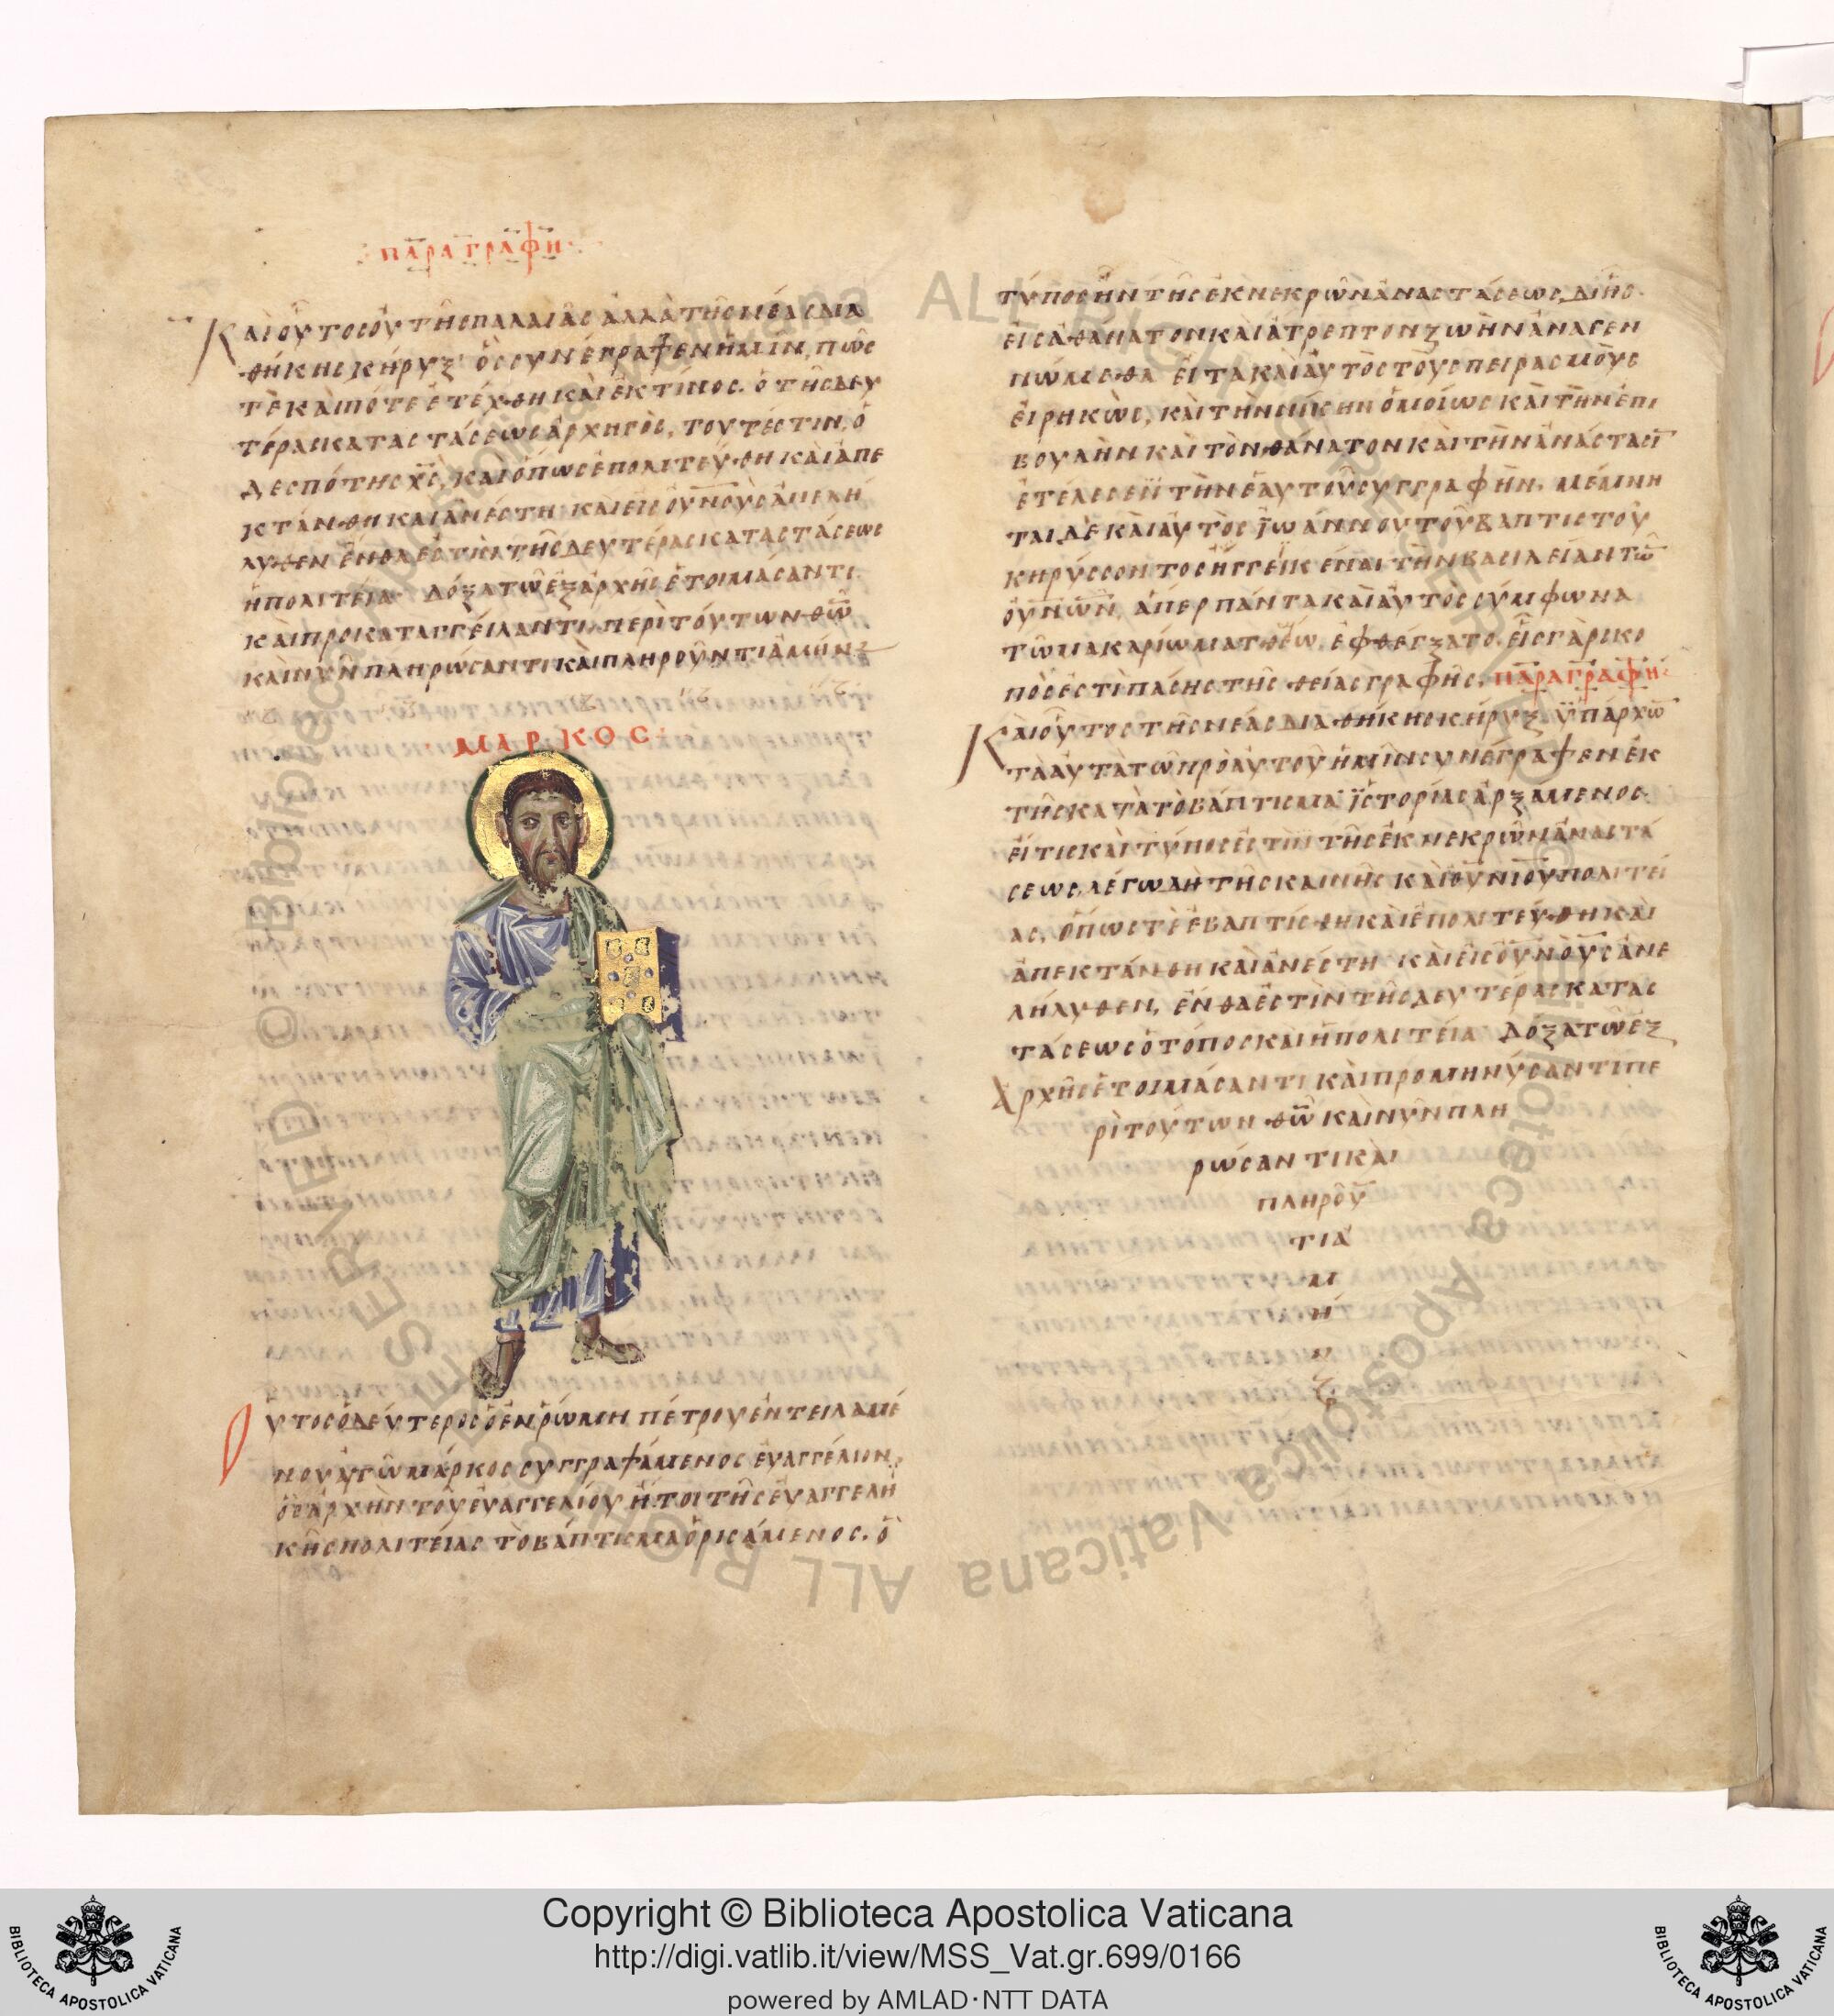 ΠΑΡΑΓΡΑΦΗ
Καὶ οὗτος οὐ τῆς παλαιᾶς ἀλλὰ τῆς νέας δια
θήκης κήρυξ ὃς συνέγραψεν ἡμῖν, πῶς
τὲ καὶ πότε ἐτέχθη καὶ ἐκ τίνος. ὁ τῆς δευ
τέρας καταστάσεως ἀρχηγὸς, τουτέστιν, ὁ
δεσπότης χς, καὶ ὅπως ἐπολιτεύθη καὶ ἀπε
κτάνθη καὶ ἀνέστη καὶ εἰς οὐνοὺς ἀνελή
λυθεν ἔνθα ἐστὶ τῆς δευτέρας καταστάσεως
ἡ πολιτεία· Δόξα τῶ ἐξ ἀρχῆς ἑτοιμάσαντι
καὶ προκαταγγείλαντι περὶ τούτων θω
καὶ νῦν πληρώσαντι καὶ πληροῦντι ἀμήν
ΜΑΡΚΟΣ
Οὗτος ὁ δεύτερος ὁ ἐν ῥώμη πέτρου ἐντειλαμέ
νου αὐτῶ μάρκος συγγραψάμενος εὐαγγέλιον,
ὃς ἀρχὴν τοῦ εὐαγγελίου ἤτοι τῆς εὐαγγελη
κῆς πολιτείας τὸ βάπτισμα ὁρισάμενος. ὃ
τύπος ἦν τῆς ἐκ νεκρῶν ἀναστάσεως, δι ἧς
εἰς ἀθάνατον καὶ ἄτρεπτον ζωὴν ἀναγεν
νώμεθα εἶτα καὶ αὐτὸς τοὺς πειρασμοὺς
εἰρηκὼς, καὶ τὴν νίκην ὁμοίως καὶ τὴν ἐπι
βουλὴν καὶ τὸν θάνατον καὶ τὴν ἀνάστασι
ἐτέλεσεν τὴν ἑαυτοῦ συγγραφὴν. μέμνη
ται δὲ καὶ αὐτὸς ϊωάννου τοῦ βαπτιστοῦ
κηρύσσοντος ἠγγεικέναι τὴν βασιλείαν τῶ
οὐνῶν, ἅπερ πάντα καὶ αὐτὸς σύμφωνα
τῶ μακαρίω ματθέω ἐφθέγξατο. εἷς γὰρ σκο
πός ἐστὶ πάσης τῆς θείας γραφῆς. ΠΑΡΑΓΡΑΦΗ
Καὶ οὗτος τῆς νέας διαθήκης κήρυξ ϋπάρχω
τὰ αὐτὰ τῶ πρὸ αὐτοῦ ἡμῖν συνέγραψεν ἐκ
τῆς κατὰ τὸ βάπτισμα ϊστορίας ἀρξάμενος
εἴ τις καὶ τύπος ἐστὶ τῆς ἐκ νεκρῶν ἀναστά
σεως, λέγω δὴ τῆς καινῆς καὶ οὐνιου πολιτεί
ας, ὅπως τὲ ἐβαπτίσθη καὶ ἐπολιτεύθη καὶ
ἀπεκτάνθη καὶ ἀνέστη καὶ εἰς οὐνοὺς ἀνε
λήλυθεν, ἔνθα ἐστὶν τῆς δευτέρας κατασ
τάσεως ὁ τόπος καὶ ἡ πολιτεία Δόξα τῶ ἐξ
Ἀρχῆς ἑτοιμάσαντι καὶ προμηνύσαντι πε
ρὶ τούτων θω καὶ νῦν πλη
ρώσαντι καὶ
πληροῦ
τι ἀ
μ
ή
ν
Copyright © Biblioteca Apostolica Vaticana
http://digi.vatlib.it/view/MSS_Vat.gr.699/0166
powered by AMLAD·NTT DATA
BIBLIOTECA APOSTOLICA VATICANA
BIBLIOTECA APOSTOLICA VATICANA